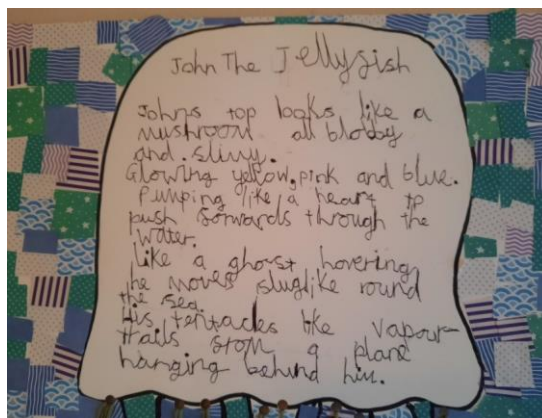 John The Jellyfish
Johns top looks like a
mushroom all blobby
and slimy.
Glowing yellow, pink and blue.
Pumping like a heart to
push forwards through the
water.
Like a ghost hovering
he moves sluglike round
the sea.
His tentacles like vapour
trails from a plane
hanging behind him.